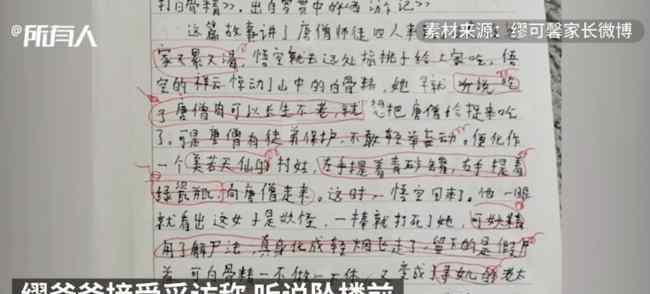 打白骨精》，出自罗贯中的《西游记》
@所有人
素材来源：缪可馨家长微博
这篇故事讲了唐僧师徒四人来
家不累又渴，悟空就去远处摘桃子给大家吃，悟
空的祥云惊动了山中的白骨精，她早就听说吃
了唐僧肉可以长生不老，就想把唐僧给捉来吃
了。可是唐僧有徒弟保护，不敢轻举妄动。便化作
一个美若天仙的村姑，左手提着青砂罐，右手提着
绿瓷瓶，向唐僧走来。这时，悟空回来了。他一眼
就看出这女子是妖怪，一棒就打死了她，可妖精
用了解尸法，真身化成轻烟飞走了，留下的是假尸
首。可白骨精一不做一不休，又变成了
缪爸爸接受采访称 听说坠楼前